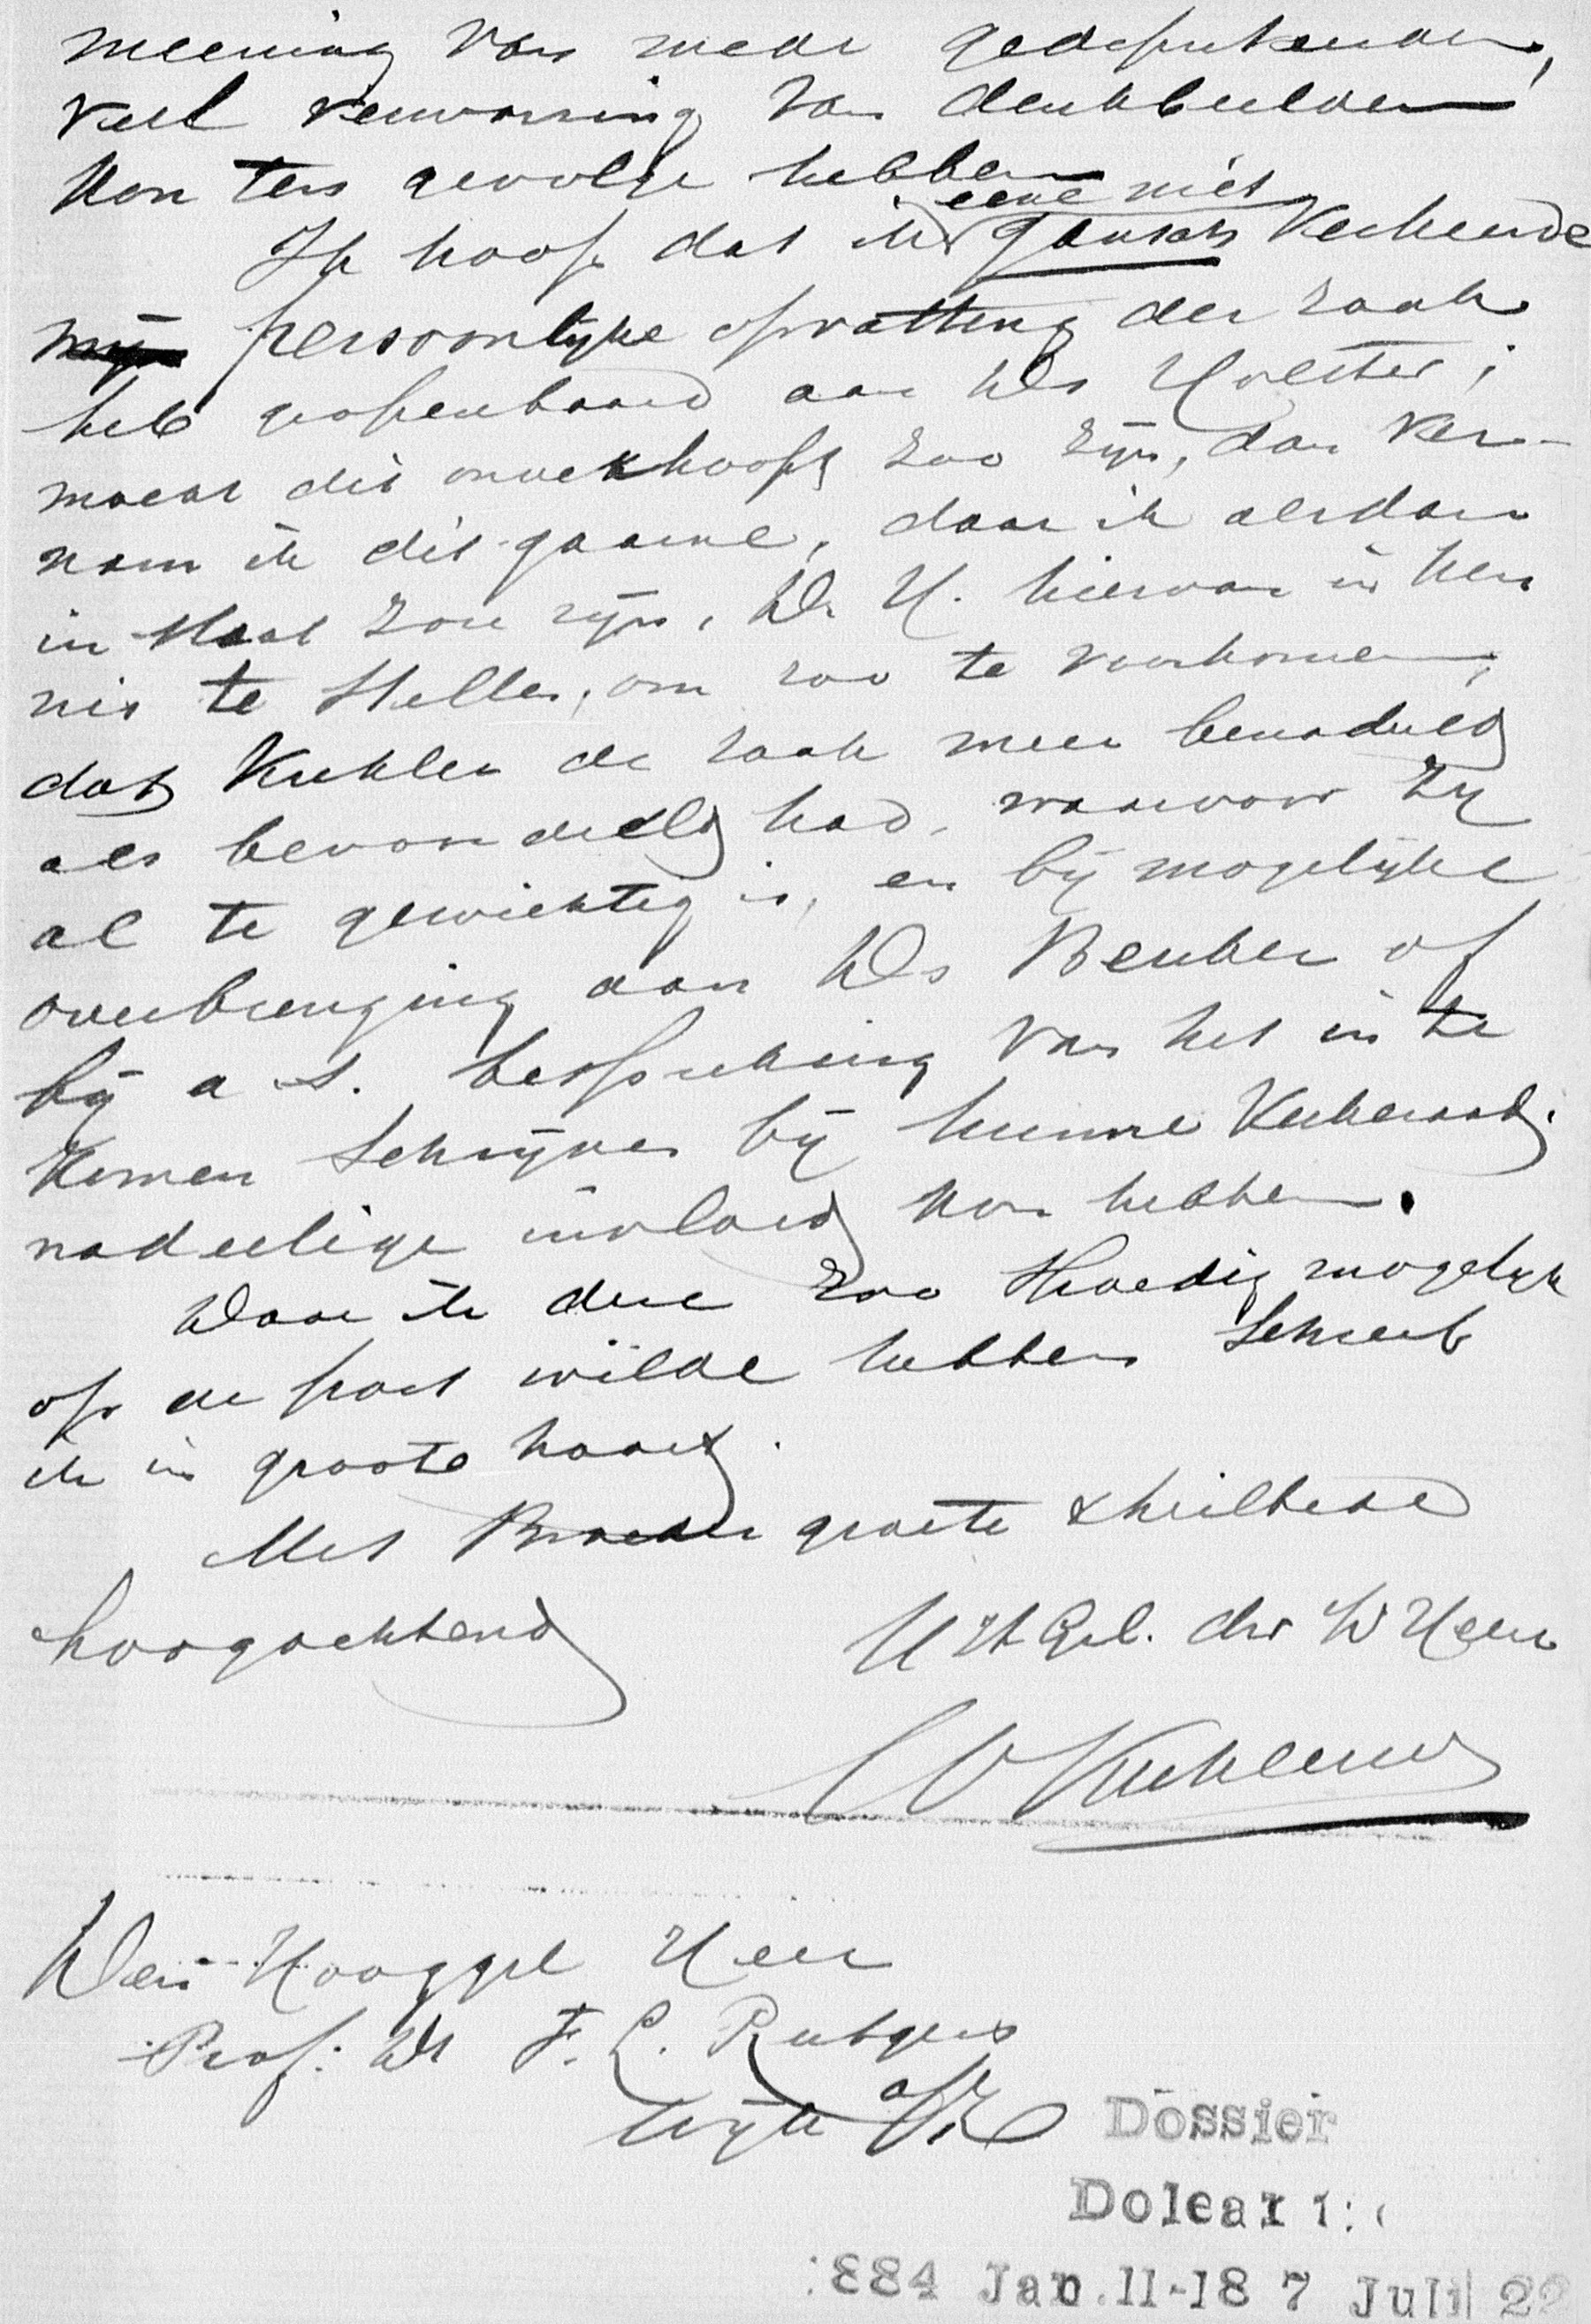 meening van mede gedeputeerden,
veel verwarring van denkbeelden
kon ten gevolge hebben
eene niet
Ik hoop dat ik gansch verkeerde
mijn persoonlijke opvatting der zaak
heb geopenbaard aan Ds
mocht dit onverhoopt zoo zijn, dan ver-
nam ik dit gaarne, daar ik alsdan
in staat zou zijn, Ds H. hiervan in ken
nis te stellen, om zoo te voorkomen,
dat Kuhler de zaak meer benadeeld
als bevoordeeld had, waarvoor zij
al te gewichtig is, en bij mogelijke
overbrenging aan Ds Beuker of
bij a s. bespreking van het in te
komen schrijven bij hunne Kerkeraad.
nadeelige invloed kon hebben.
Daar ik deze zoo spoedig mogelijk
op de post wilde hebben schreef
ik in groote haast.
Met Broeder groete & heilbede
hoogachtend
UHGel. dw Dienr
Den Hooggel Heer
Prof: Dr F. L. Rutgers
Dossier
Doleanti
884 Jan.11-18 7 Juli 22